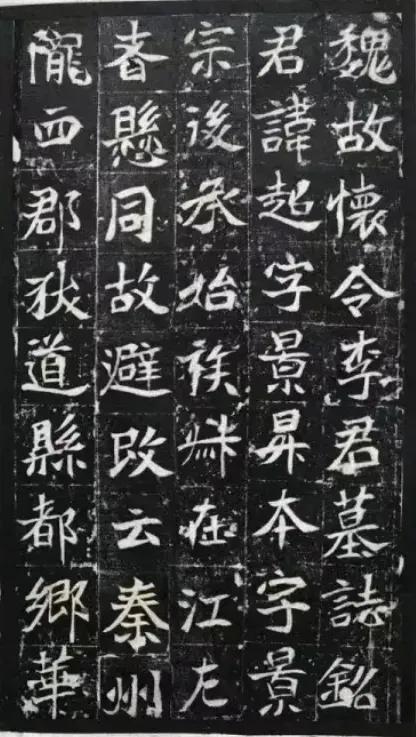 魏故懷令李君墓誌銘
君諱超字景昇本字景
宗後承始族叔在江左
者懸同故避改云秦州
隴西郡狄道縣都鄉華